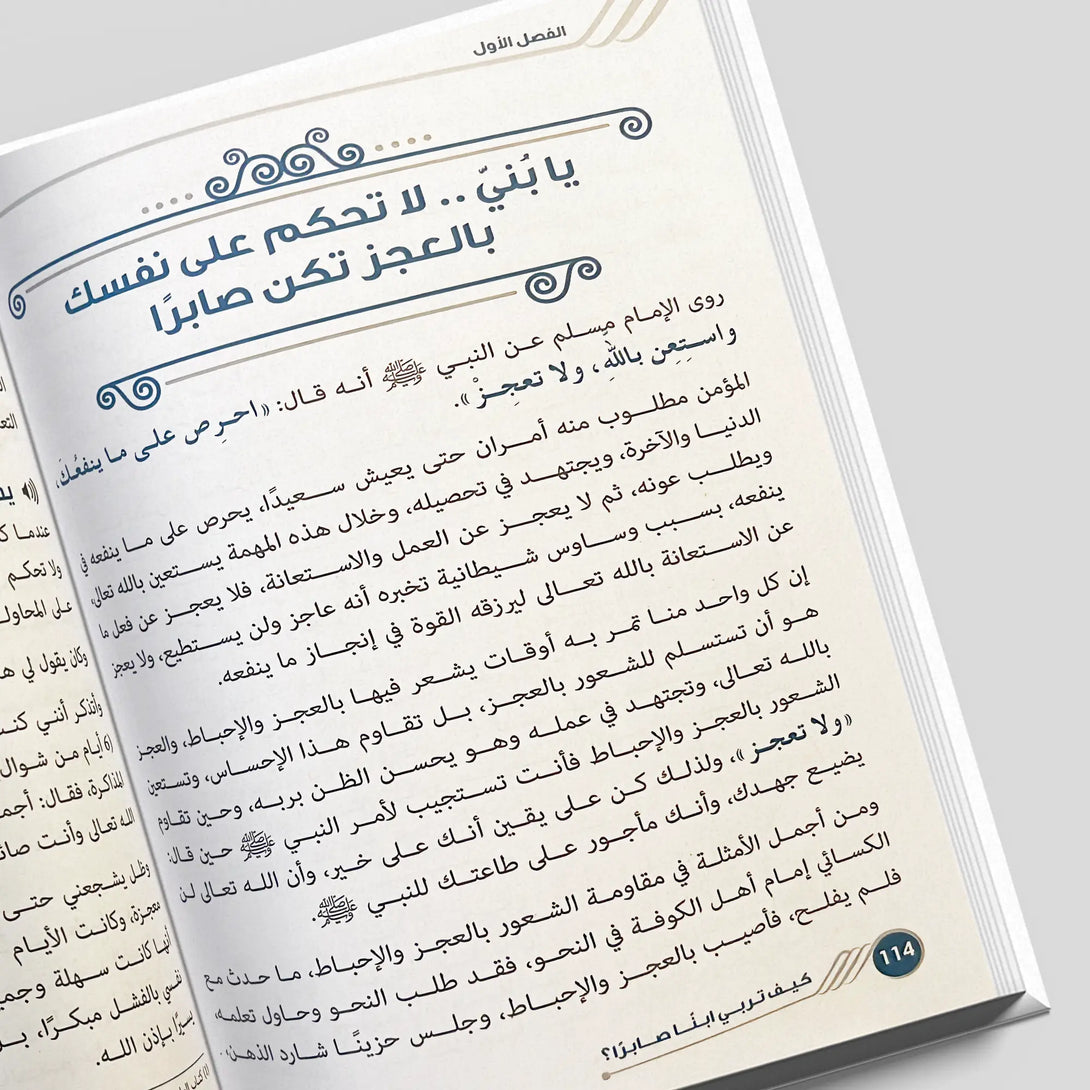 الفصل الأول
يا بُنيّ .. لا تحكم على نفسك
بالعجز تكن صابرًا
روى الإمام مسلم عن النبي ﷺ أنه قال: «احرِص على ما ينفعُكَ،
واستِعِن باللهِ، ولا تعجِزْ».
المؤمن مطلوب منه أمران حتى يعيش سعيدًا، يحرص على ما ينفعه في
الدنيا والآخرة، ويجتهد في تحصيله، وخلال هذه المهمة يستعين بالله تعالى
ويطلب عونه، ثم لا يعجز عن العمل والاستعانة، فلا يعجز عن فعل ما
ينفعه، بسبب وساوس شيطانية تخبره أنه عاجز ولن يستطيع، ولا يعجز
عن الاستعانة بالله تعالى ليرزقه القوة في إنجاز ما ينفعه.
إن كل واحد منا تمر به أوقات يشعر فيها بالعجز والإحباط، والعجز
هو أن تستسلم للشعور بالعجز، بل تقاوم هذا الإحساس، وتستعين
بالله تعالى، وتجتهد في عمله وهو يحسن الظن بربه، وحين تقاوم
الشعور بالعجز والإحباط فأنت تستجيب لأمر النبي ﷺ حين قال:
«ولا تعجز»، ولذلك كن على يقين أنك على خير، وأن الله تعالى لن
يضيع جهدك، وأنك مأجور على طاعتك للنبي ﷺ.
ومن أجمل الأمثلة في مقاومة الشعور بالعجز والإحباط، ما حدث مع
الكسائي إمام أهل الكوفة في النحو، فقد طلب النحو وحاول تعلمه،
فلم يفلح، فأصيب بالعجز والإحباط، وجلس حزينًا شارد الذهن،
114
كيف تربي ابنًا صابرًا؟
عندما
ولا تحكم
على
وكان يقول لي
وأتذكر أنني
(6) أيام من شوال
المذاكرة، فقال:
الله تعالى وأنت
وظل يشجعني حتى
معجزة، وكانت الأيام
أنها كانت سهلة
نفسي بالفشل مبكرًا،
يسيرًا بإذن الله.